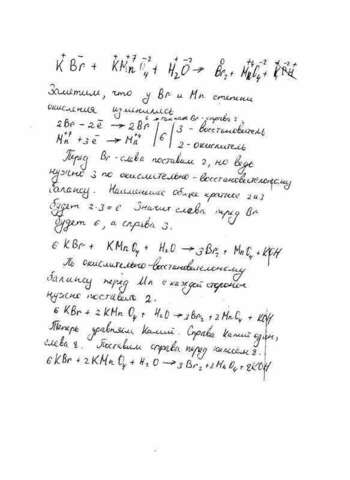 K Br + KMnO4 + H2O → Br2 + MnO4 + KOH
Заметим, что у Br и Mn степени
окисления изменились
2Br - 2e → 2Br 3 - восстановитель
Mn+7 + 3e → Mn+4 6 2 - окислитель
Перед Br слева поставим 2, но ведь
нужно 3 по окислительно-восстановительному
балансу. Наименьшее общее кратное 2 и 3
будет 2·3=6 Значит слева перед Br
будет 6, а справа 3.
6 KBr + KMnO4 + H2O → 3Br2 + MnO4 + KOH
По окислительно-восстановительному
балансу перед Mn с каждой стороны
нужно поставить 2.
6 KBr + 2KMnO4 + H2O → 3Br2 + 2MnO4 + KOH
Теперь уравняем Калий. Справа Калий один,
слева 8. Поставим справа перед калием 8.
6 KBr + 2KMnO4 + H2O → 3Br2 + 2MnO4 + 8KOH